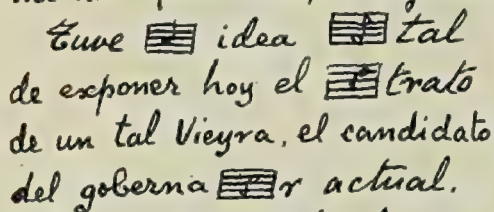 Tuve idea tal
de exponer hoy el trato
de un tal Vieyra, el candidato
del goberna r actual.